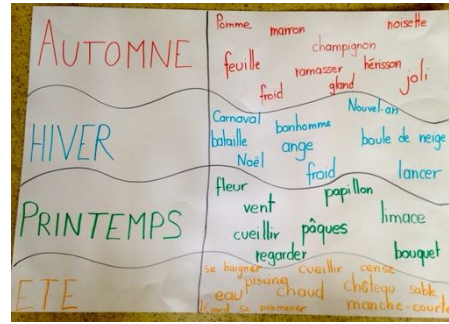 AUTOMNE
Pomme marron noisette
champignon
feuille ramasser hérisson joli
froid gland
HIVER
Carnaval bonhomme Nouvel-an
bataille ange boule de neige
Noël froid lancer
PRINTEMPS
fleur papillon
vent limace
cueillir pâques
regarder bouquet
ETE
se baigner cueillir cerise
piscine château sable
eau chaud
lézard se promener manche-courte